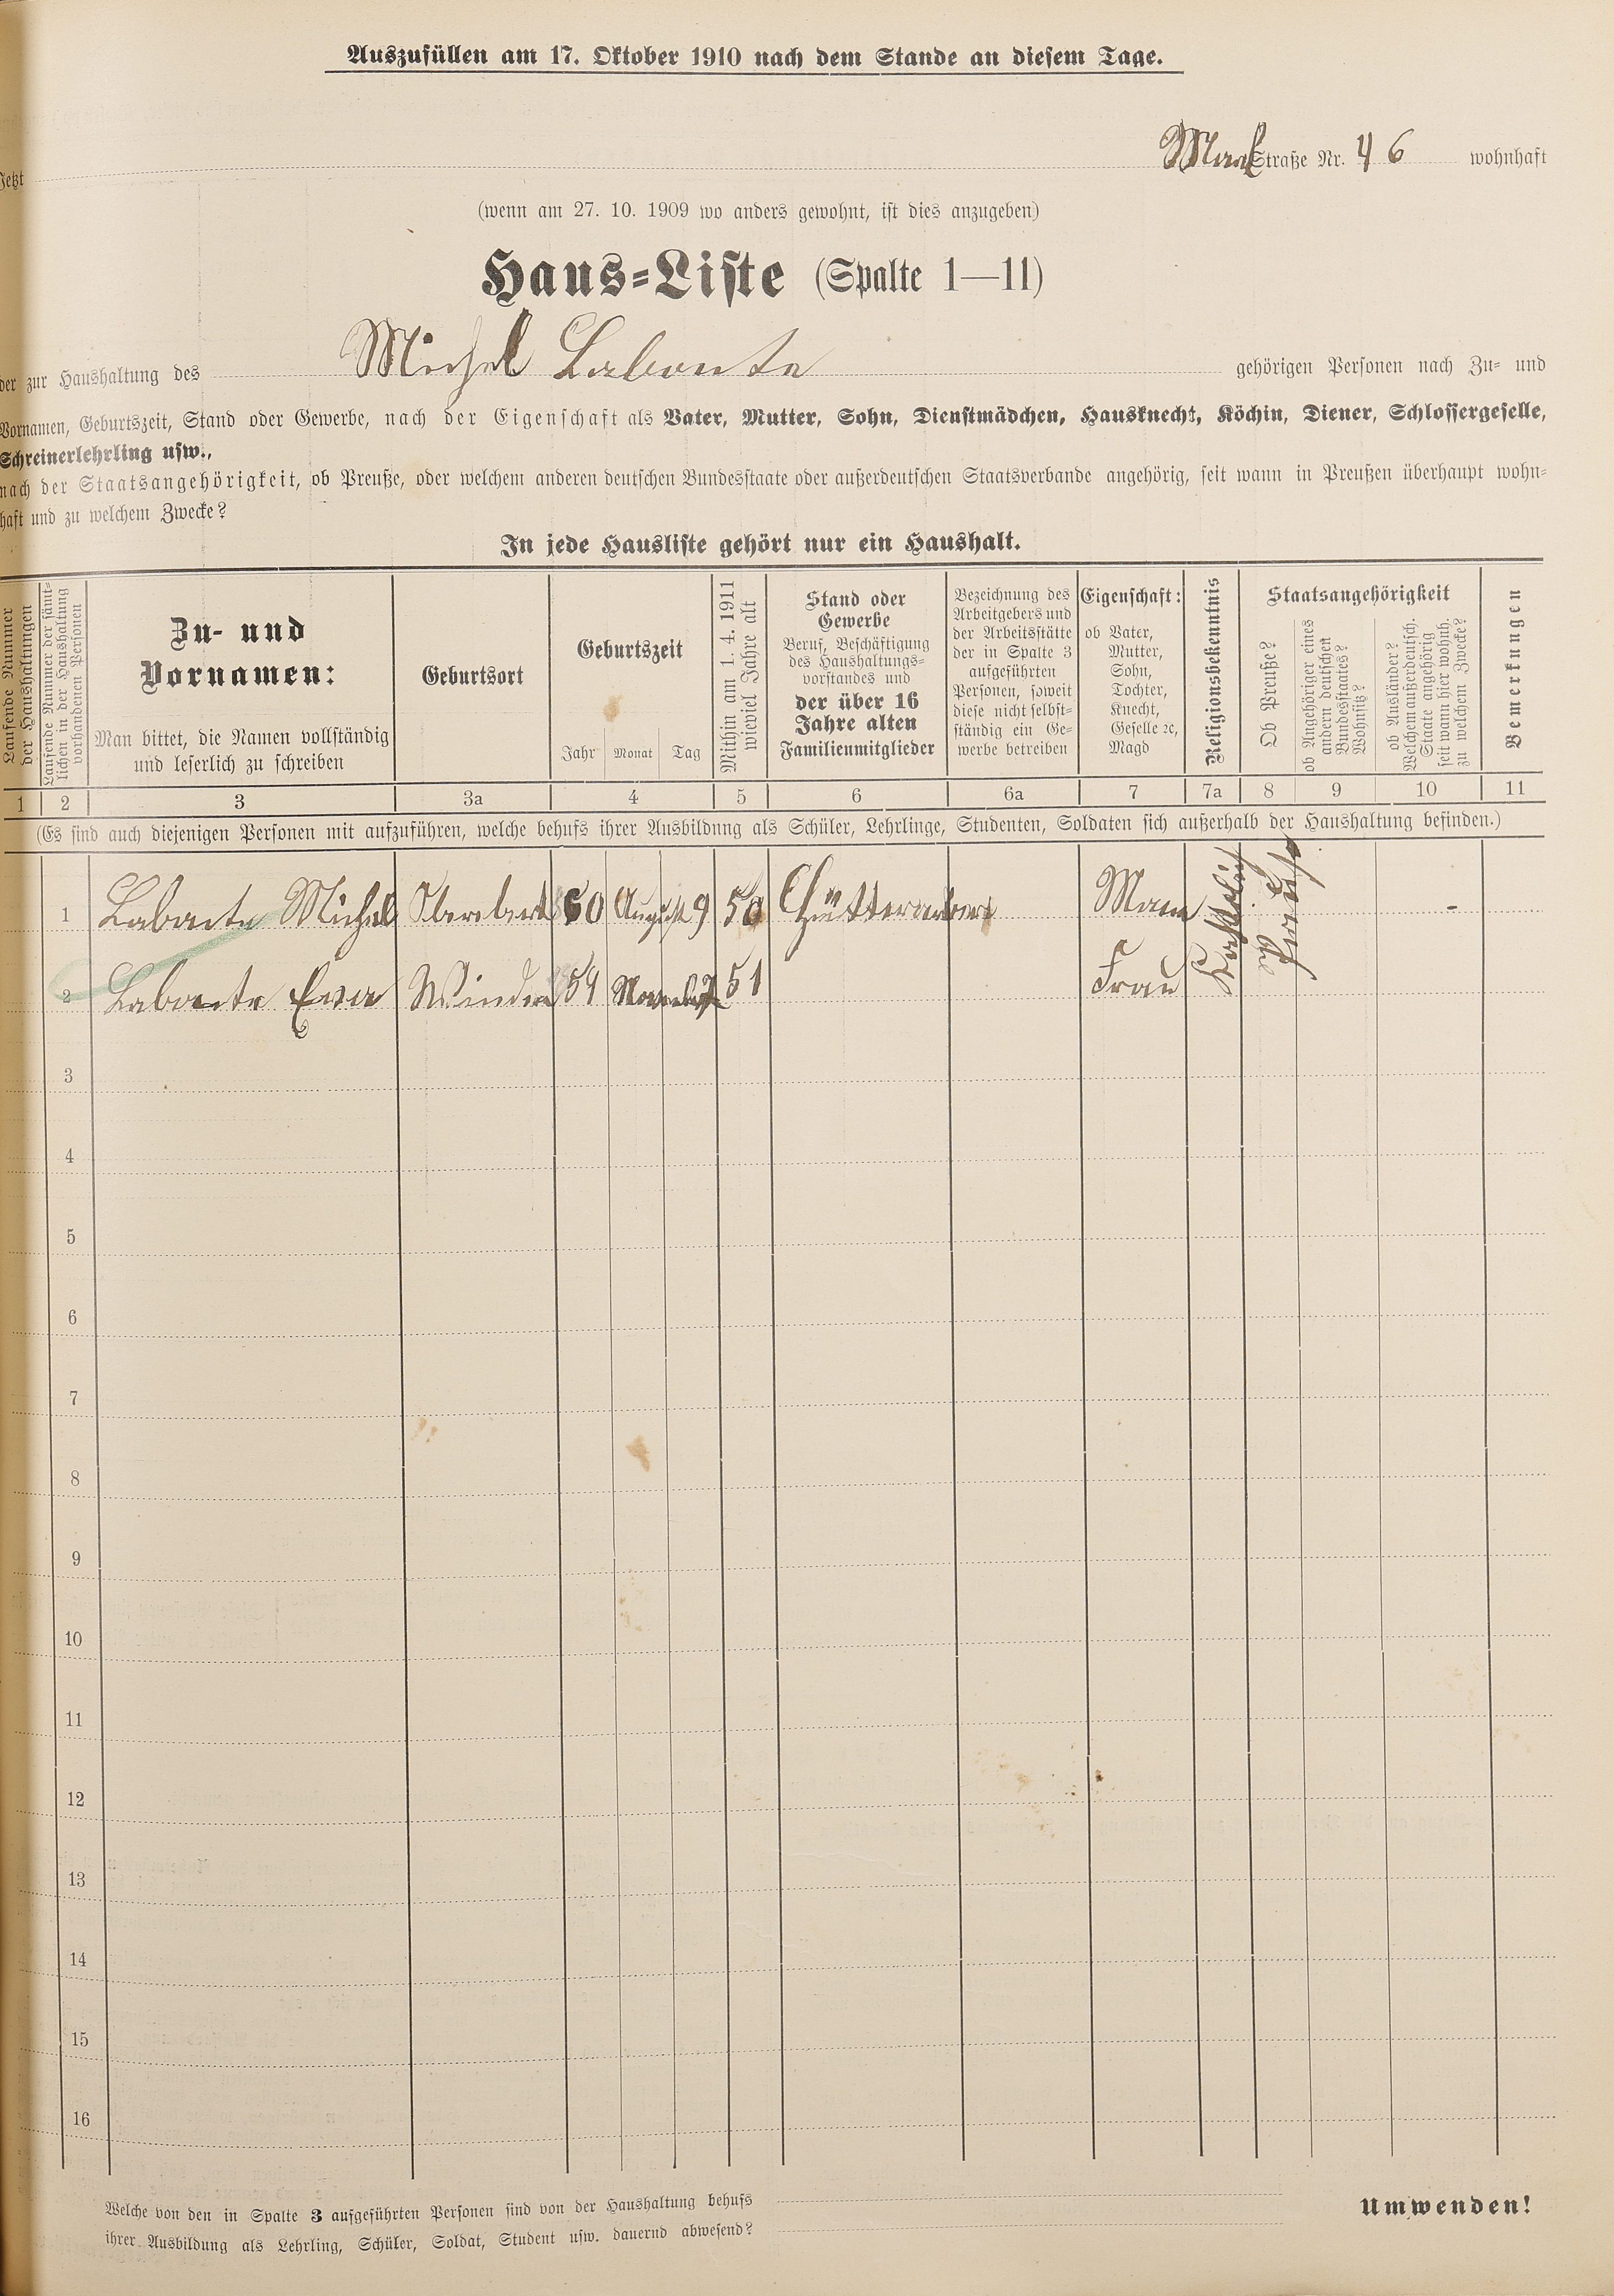 Auszufüllen am 17. Oktober 1910 nach dem Stande an diesem Tage.
Jetzt Straße Nr. 46 wohnhaft
(wenn am 27. 10. 1909 wo anders gewohnt, ist dies anzugeben)
Haus-Liste (Spalte 1—11)
der zur Haushaltung des Michel Labonte gehörigen Personen nach Zu- und
Vornamen, Geburtszeit, Stand oder Gewerbe, nach der Eigenschaft als Vater, Mutter, Sohn, Dienstmädchen, Hausknecht, Köchin, Diener, Schlossergeselle,
Schreinerlehrling usw.,
nach der Staatsangehörigkeit, ob Preuße, oder welchem anderen deutschen Bundesstaate oder außerdeutschen Staatsverbande angehörig, seit wann in Preußen überhaupt wohn-
haft und zu welchem Zwecke?
In jede Hausliste gehört nur ein Haushalt.
Laufende Nummer
der Haushaltungen
Laufende Nummer der sämt-
lichen in der Haushaltung
vorhandenen Personen
Zu- und
Vornamen:
Man bittet, die Namen vollständig
und leserlich zu schreiben
Geburtsort
Geburtszeit
Jahr Monat Tag
Mithin am 1. 4. 1911
wieviel Jahre alt
Stand oder
Gewerbe
Beruf, Beschäftigung
des Haushaltungs-
vorstandes und
der über 16
Jahre alten
Familienmitglieder
Bezeichnung des
Arbeitgebers und
der Arbeitsstätte
der in Spalte 3
aufgeführten
Personen, soweit
diese nicht selbst-
ständig ein Ge-
werbe betreiben
Eigenschaft:
ob Vater,
Mutter,
Sohn,
Tochter,
Knecht,
Geselle ꝛc,
Magd
Religionsbekenntnis
Staatsangehörigkeit
Ob Preuße?
ob Angehöriger eines
andern deutschen
Bundesstaates?
Wohnsitz?
ob Ausländer?
Welchem außerdeutsch.
Staate angehörig
seit wann hier wohnh.
zu welchem Zwecke?
Bemerkungen
1 2 3 3a 4 5 6 6a 7 7a 8 9 10 11
(Es sind auch diejenigen Personen mit aufzuführen, welche behufs ihrer Ausbildung als Schüler, Lehrlinge, Studenten, Soldaten sich außerhalb der Haushaltung befinden.)
1 Labonte Michel 60 August 9 50 Hüttenarbeiter Mann -
2 Labonte Eva 59 51 Frau
Katholisch
Preuße
3
4
5
6
7
8
9
10
11
12
13
14
15
16
Welche von den in Spalte 3 aufgeführten Personen sind von der Haushaltung behufs
ihrer Ausbildung als Lehrling, Schüler, Soldat, Student usw. dauernd abwesend?
Umwenden!